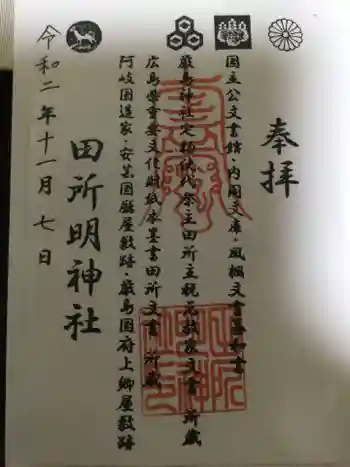 奉拝
国立公文書館・内閣文庫・風楓文書
厳島神社定額供代祭主田所主税
文書所蔵
広島県重要文化財紙本墨書田所文書所蔵
阿岐国造家・安芸国庁屋敷跡・厳島国府上卿屋敷跡
田所明神社
令和二年十一月七日